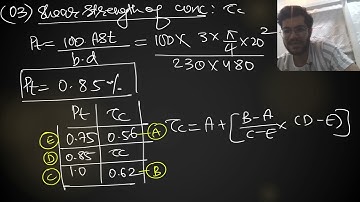 (03) Shear strength of conc: τc
Pt = 100 Ast / b·d = 100 × 3 × π/4 × 20² / 230 × 480
Pt = 0.85%
Pt τc
E 0.75 0.56 A
D 0.85 τc
C 1.0 0.62 B
τc = A + [B-A / C-E × (D-E)]